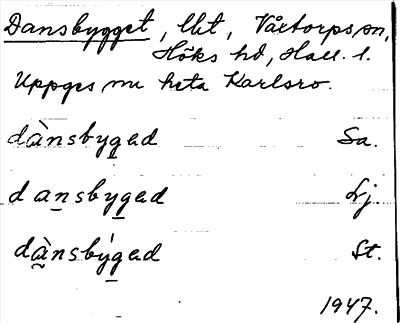 Dansbygget, lht, Våxtorps sn,
Höks hd, Hall. l.
Uppges nu heta Karlsro.
dànsbygad Sa.
dansbygad Lj.
dànsbýgad St.
1947.